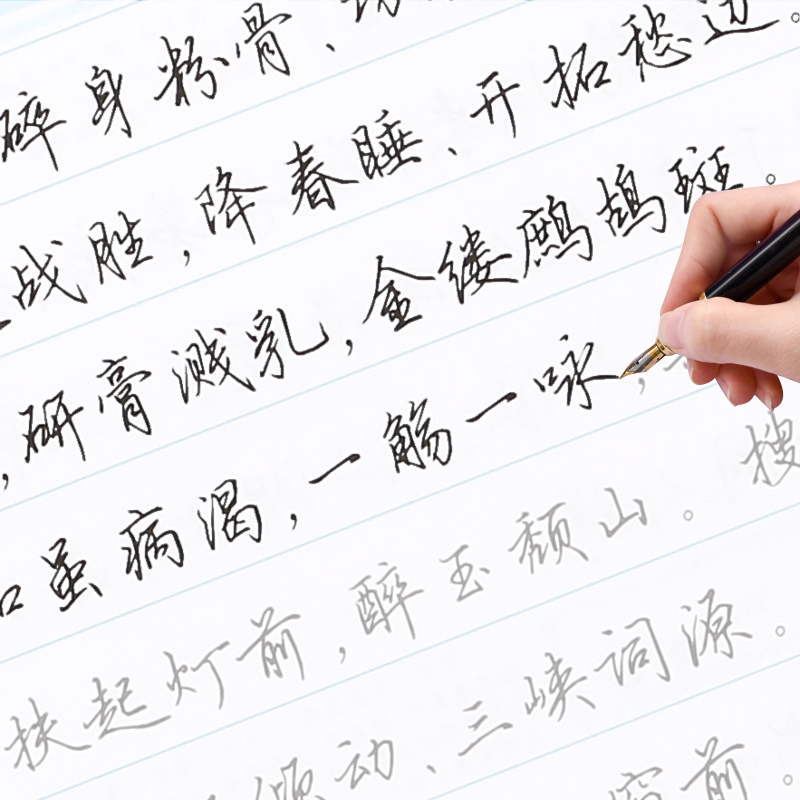 碎身粉骨、
战胜,降春睡、开拓愁边。
,研膏溅乳,金缕鹧鸪斑。
虽病渴,一觞一咏,
扶起灯前,醉玉颓山。搜
倾动、三峡词源。
窗前。